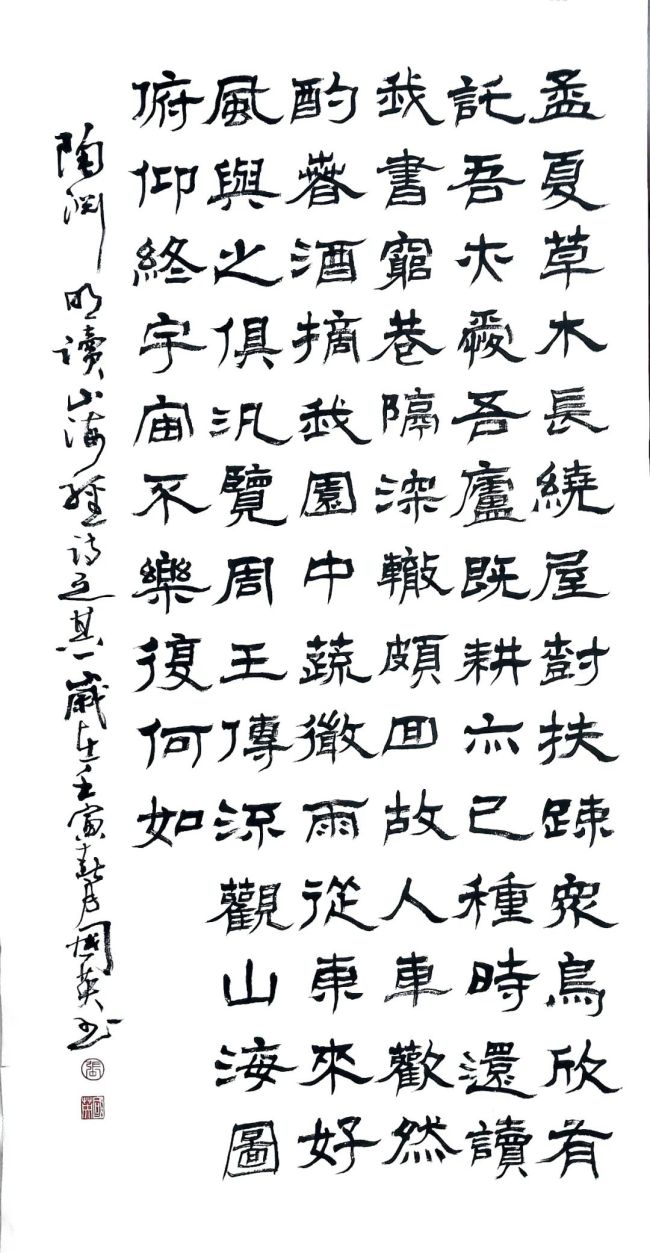 孟夏草木長繞屋尌扶踈眾鳥欣有
託吾亦愛吾廬既耕亦已種時還讀
我書窮巷隔深轍頗回故人車歡然
酌春酒摘我園中蔬微雨從東來好
風與之俱汎覽周王傳流觀山海圖
俯仰終宇宙不樂復何如
陶渊明讀山海經诗之其一歲在壬寅春月國英书
張